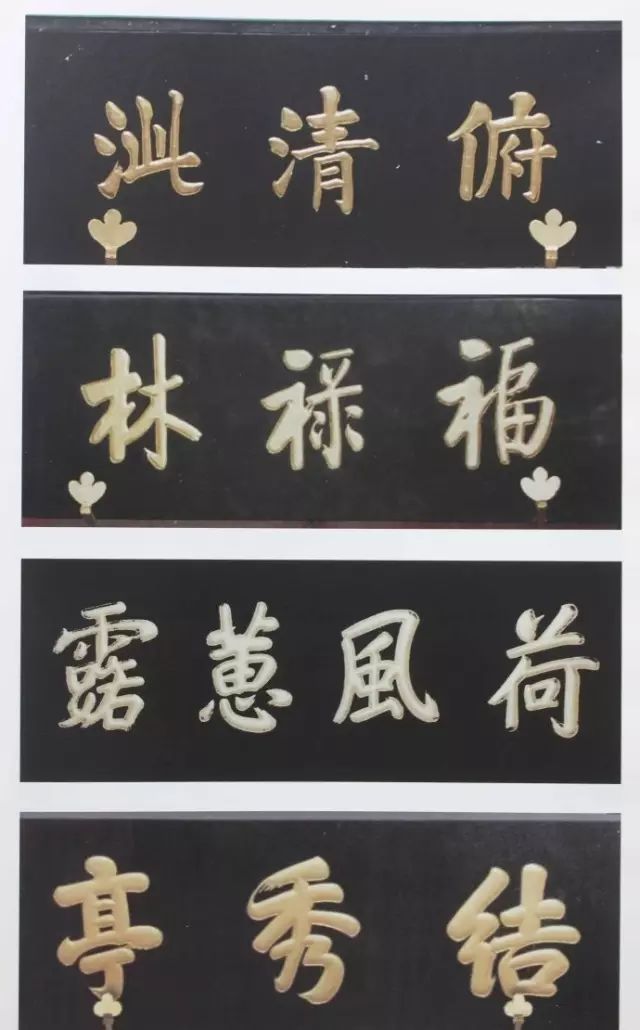 俯清泚
福禄林
荷風蕙露
結秀亭